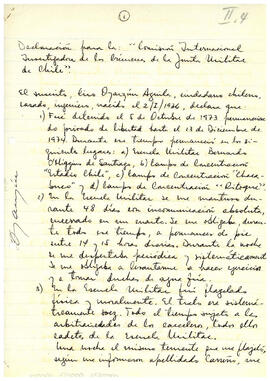 1
II.4
Declaración para la: "Comisión Internacional
Investigadora de los Crímenes de la Junta Militar
de Chile".
El suscrito, Ciro Oyarzún Aguila, ciudadano chileno,
casado, ingeniero, nacido el 2/I/1926, declara que:
1) Fué detenido el 5 de Octubre de 1973 permaneciendo
privado de libertad hasta el 13 de Diciembre de
1974. Durante ese tiempo permaneció en los si-
guientes lugares: a) Escuela Militar Bernardo
O'Higgins de Santiago, b) Campo de Concentración
"Estadio Chile", c) Campo de Concentración "Chaca-
buco" y d) Campo de Concentración "Ritoque".
2) En la Escuela Militar se me mantuvo du-
rante 48 días en incomunicación absoluta,
encerrado en un cuarto. Se me obligaba, duran-
te todo ese tiempo, a permanecer de pie
entre 14 y 15 horas diarias. Durante la noche
se me despertaba periódica y sistemáticamente.
Se me obligaba a levantarme, a hacer ejercicios
y a tomar duchas de agua fría.
3) En la Escuela Militar fuí flagelado
física y moralmente. El trato era sistemá-
ticamente soez. Todo el tiempo sujeto a las
arbitrariedades de los carceleros, todos ellos
cadetes de la Escuela Militar.
Una noche el mismo teniente que me flageló,
según me informaron apellidado Carreño, me
Oyarzún